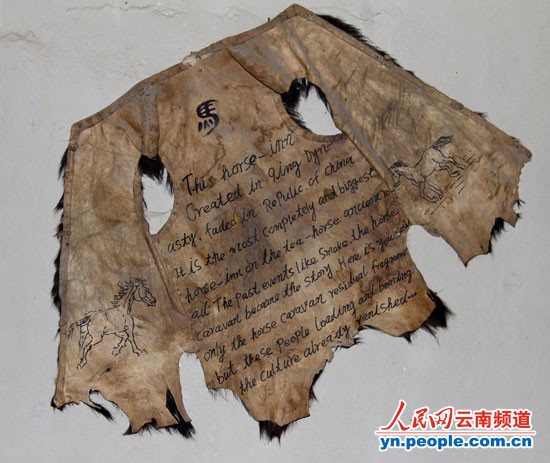 馬
This horse-inn
Created in qing Dyn-
asty. faded in RePulic. of china
it is the most completely and biggest
horse-inn on the tea-horse ancient
all The Past events like Smoke. the horse
caravan became the Story. Here is you see
only the horse caravan residual fragment
but these People Loading and bearing
the culture already vanished...
人民网云南频道
yn.people.com.cn